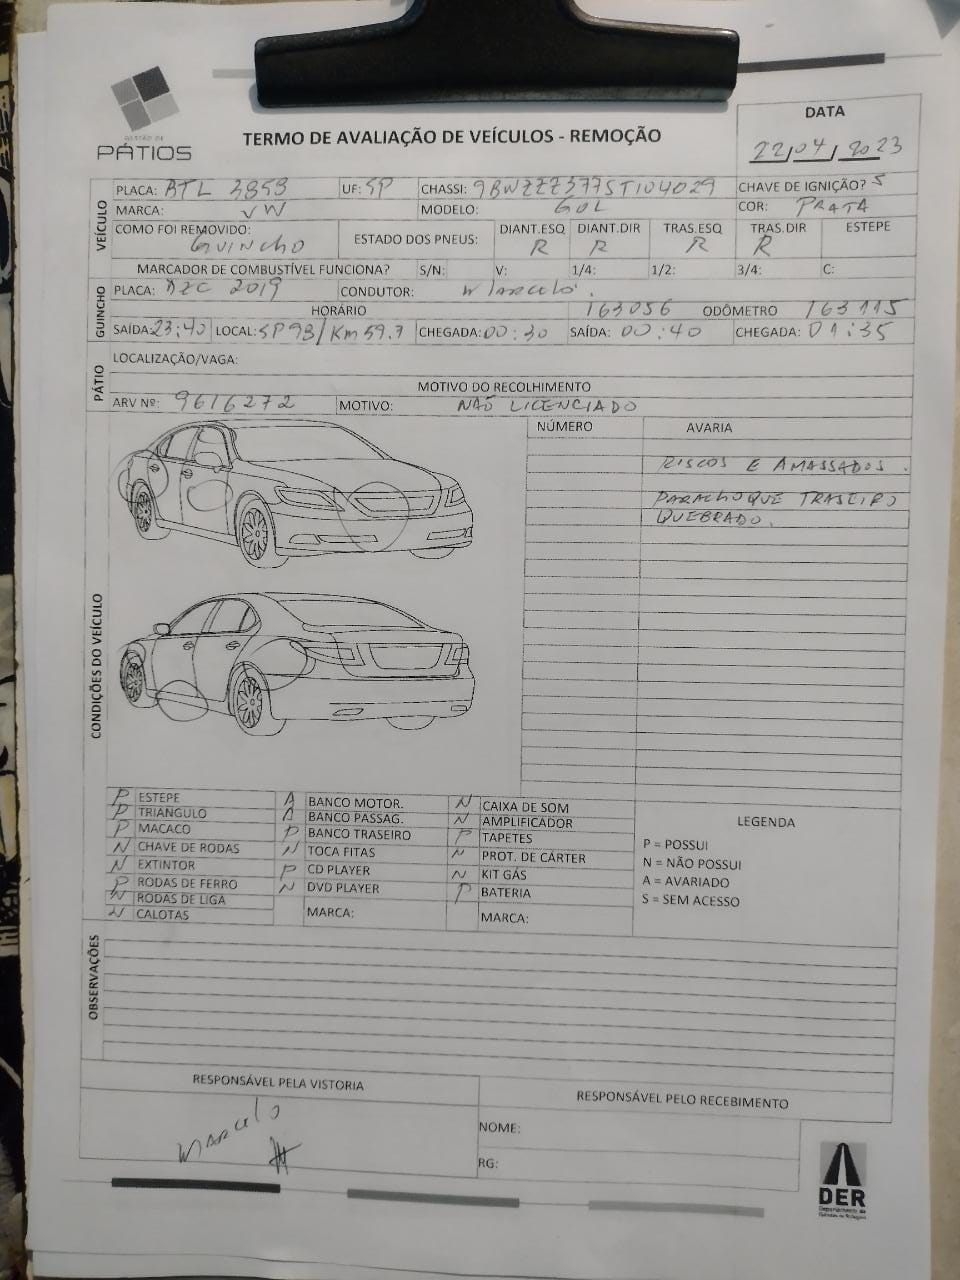 GESTÃO DE
PÁTIOS
TERMO DE AVALIAÇÃO DE VEÍCULOS - REMOÇÃO
DATA
22/04/2023
VEÍCULO
PLACA: BTL 3859 UF: SP CHASSI: 9BWZZZ377ST104029 CHAVE DE IGNIÇÃO? S
MARCA: VW MODELO: GOL COR: PRATA
COMO FOI REMOVIDO: GUINCHO ESTADO DOS PNEUS: DIANT.ESQ R DIANT.DIR R TRAS.ESQ R TRAS.DIR R ESTEPE
MARCADOR DE COMBUSTÍVEL FUNCIONA? S/N: V: 1/4: 1/2: 3/4: C:
GUINCHO
PLACA: 2019 CONDUTOR: MARCELO.
HORÁRIO 163056 ODÔMETRO 163115
SAÍDA: 23:40 LOCAL: SP 98/Km 59.7 CHEGADA: 00:30 SAÍDA: 00:40 CHEGADA: 01:35
PÁTIO
LOCALIZAÇÃO/VAGA:
MOTIVO DO RECOLHIMENTO
ARV Nº: 9616272 MOTIVO: NÃO LICENCIADO
CONDIÇÕES DO VEÍCULO
NÚMERO AVARIA
RISCOS E AMASSADOS.
PARACHOQUE TRASEIRO
QUEBRADO.
P ESTEPE A BANCO MOTOR. N CAIXA DE SOM
P TRIANGULO A BANCO PASSAG. N AMPLIFICADOR
P MACACO P BANCO TRASEIRO P TAPETES
N CHAVE DE RODAS N TOCA FITAS N PROT. DE CÁRTER
N EXTINTOR P CD PLAYER N KIT GÁS
P RODAS DE FERRO N DVD PLAYER P BATERIA
N RODAS DE LIGA MARCA: MARCA:
N CALOTAS
LEGENDA
P = POSSUI
N = NÃO POSSUI
A = AVARIADO
S = SEM ACESSO
OBSERVAÇÕES
RESPONSÁVEL PELA VISTORIA
MARCELO
RESPONSÁVEL PELO RECEBIMENTO
NOME:
RG:
DER
Departamento de
Estradas de Rodagem